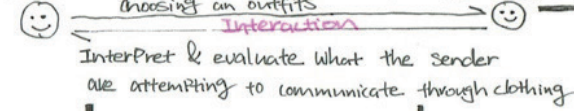 choosing an outfits
Interaction
InterPret & evaluate what the sender
are attempting to communicate through clothing